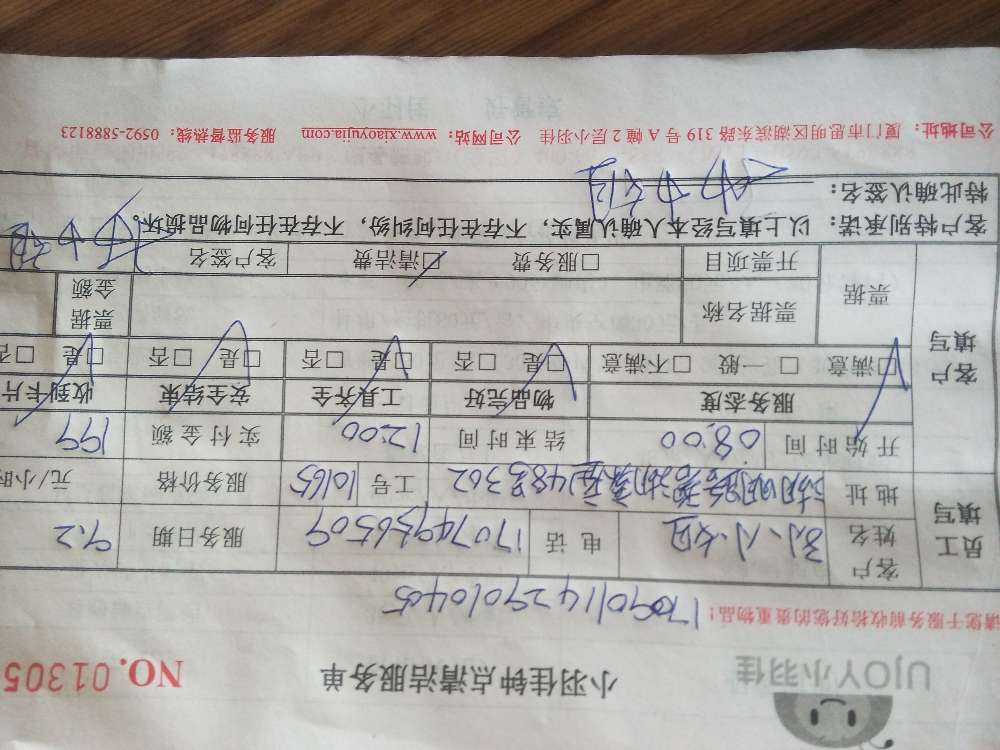 UJOY小羽佳
小羽佳钟点清洁服务单
NO. 01305
请您于服务前收拾好您的贵重物品！
1709011429010405
员工填写
客户姓名 小姐 电话 17074956509 服务日期 9.2
地址 483 302 工号 10165 服务价格 元/小时
开始时间 08:00 结束时间 12:00 实付金额 199
客户填写
服务态度 物品完好 工具齐全 安全结束 收到卡片
□满意 □一般 □不满意 □是 □否 □是 □否 □是 □否 □是 □否
票据 票据名称 票据金额
开票项目 □服务费 □清洁费 客户签名
客户特别承诺：以上填写经本人确认属实，不存在任何纠纷，不存在任何物品损坏。
特此确认签名：
公司地址：厦门市思明区湖滨东路 319 号 A 幢 2 层小羽佳 公司网站：www.xiaoyujia.com 服务监督热线：0592-5888123